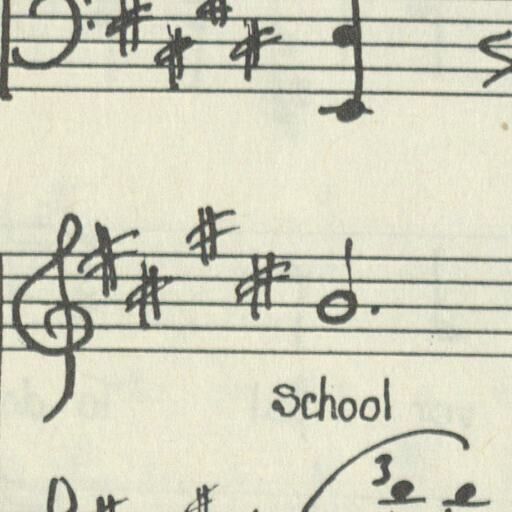 School
3